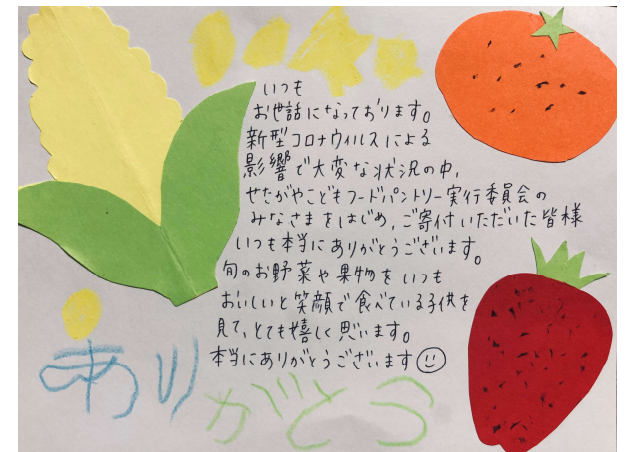 いつも
お世話になっております。
新型コロナウィルスによる
影響で大変な状況の中,
せたがやこどもフードパントリー実行委員会の
みなさまをはじめ,ご寄付いただいた皆様
いつも本当にありがとうございます。
旬のお野菜や果物をいつも
おいしいと笑顔で食べている子供を
見て,とても嬉しく思います。
本当にありがとうございます
ありがとう